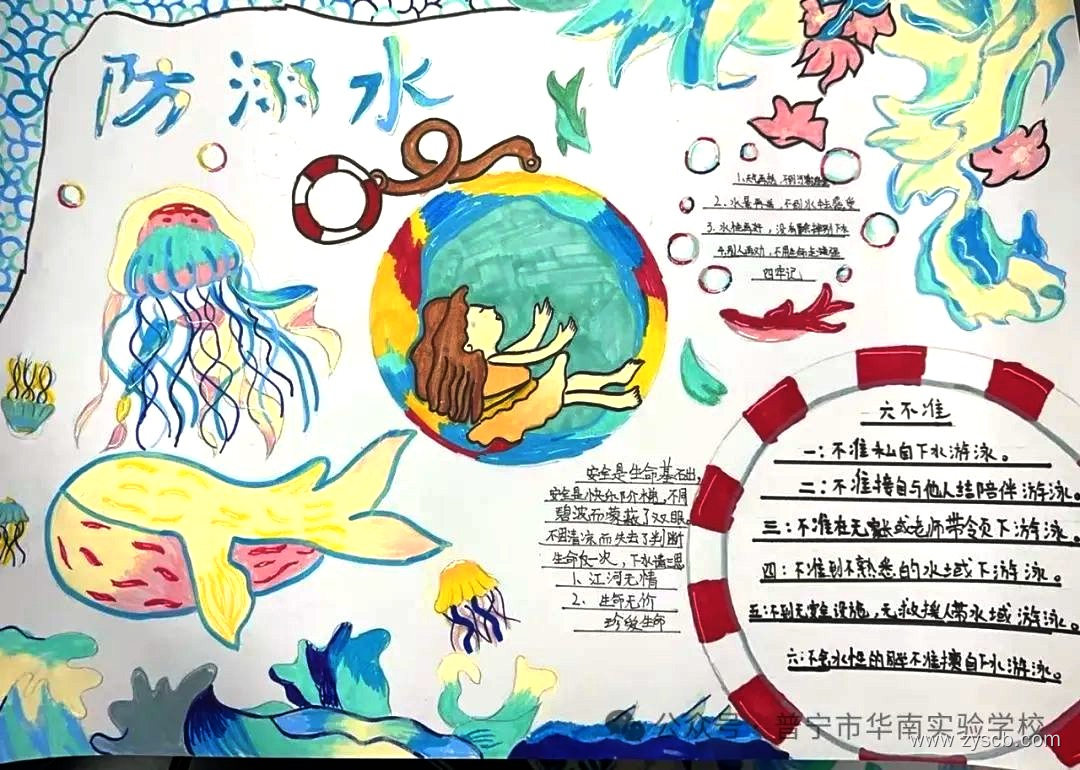 防溺水
1.天气再热，不到河塘
2.水景再美，不到水中
3.水性再好，没有家长别下水
4.别人再劝，不用生命去逞强
四牢记
安全是生命基石，
安全是快乐阶梯，不因
碧波而蒙蔽了双眼。
不因清凉而失去了判断
生命仅一次，下水请三思
1、江河无情
2、生命无价
珍爱生命
六不准
一：不准私自下水游泳。
二：不准擅自与他人结陪伴游泳。
三：不准在无家长或老师带领页下游泳。
四：不准到不熟悉的水域下游泳。
五：不到无安全设施，无救援人带水域游泳。
六：不会水性的同学不准擅自下水游泳。
公众号·普宁市华南实验学校
www.zyscb.com